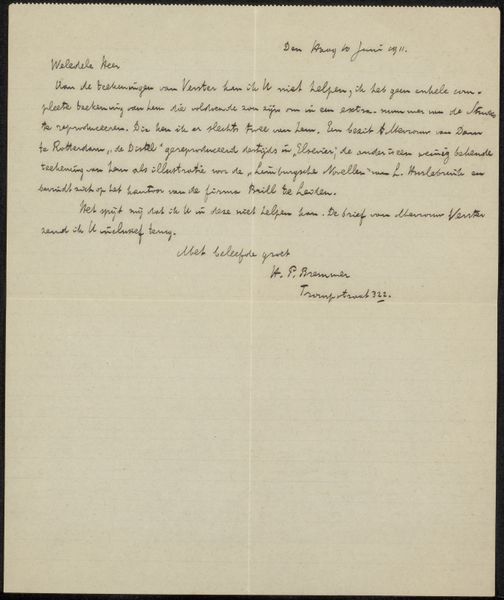 Den Haag 10 Juni 1911.
Weledele Heer
Aan de teekeningen van Verster kan ik U niet helpen; ik heb geen enkele com-
pleete teekening van hem die voldoende zou zijn om in een extra-nummer van de
te reproduceeren. Die ken ik er slechts twee van hem. Een bezit Mevrouw van Dam
te Rotterdam „de Distel" gereproduceerd destijds in „Elsevier," de ander is een weinig bekende
teekening van hem als illustratie voor de „Limburgsche Novellen" van L. en
bevindt zich op het kantoor van de firma Brill te Leiden.
Het spijt mij dat ik U in deze niet helpen kan. De brief van Mevrouw Verster
zend ik U inclusief terug.
Met beleefde groet
H. P. Bremmer
Trompstraat 322.